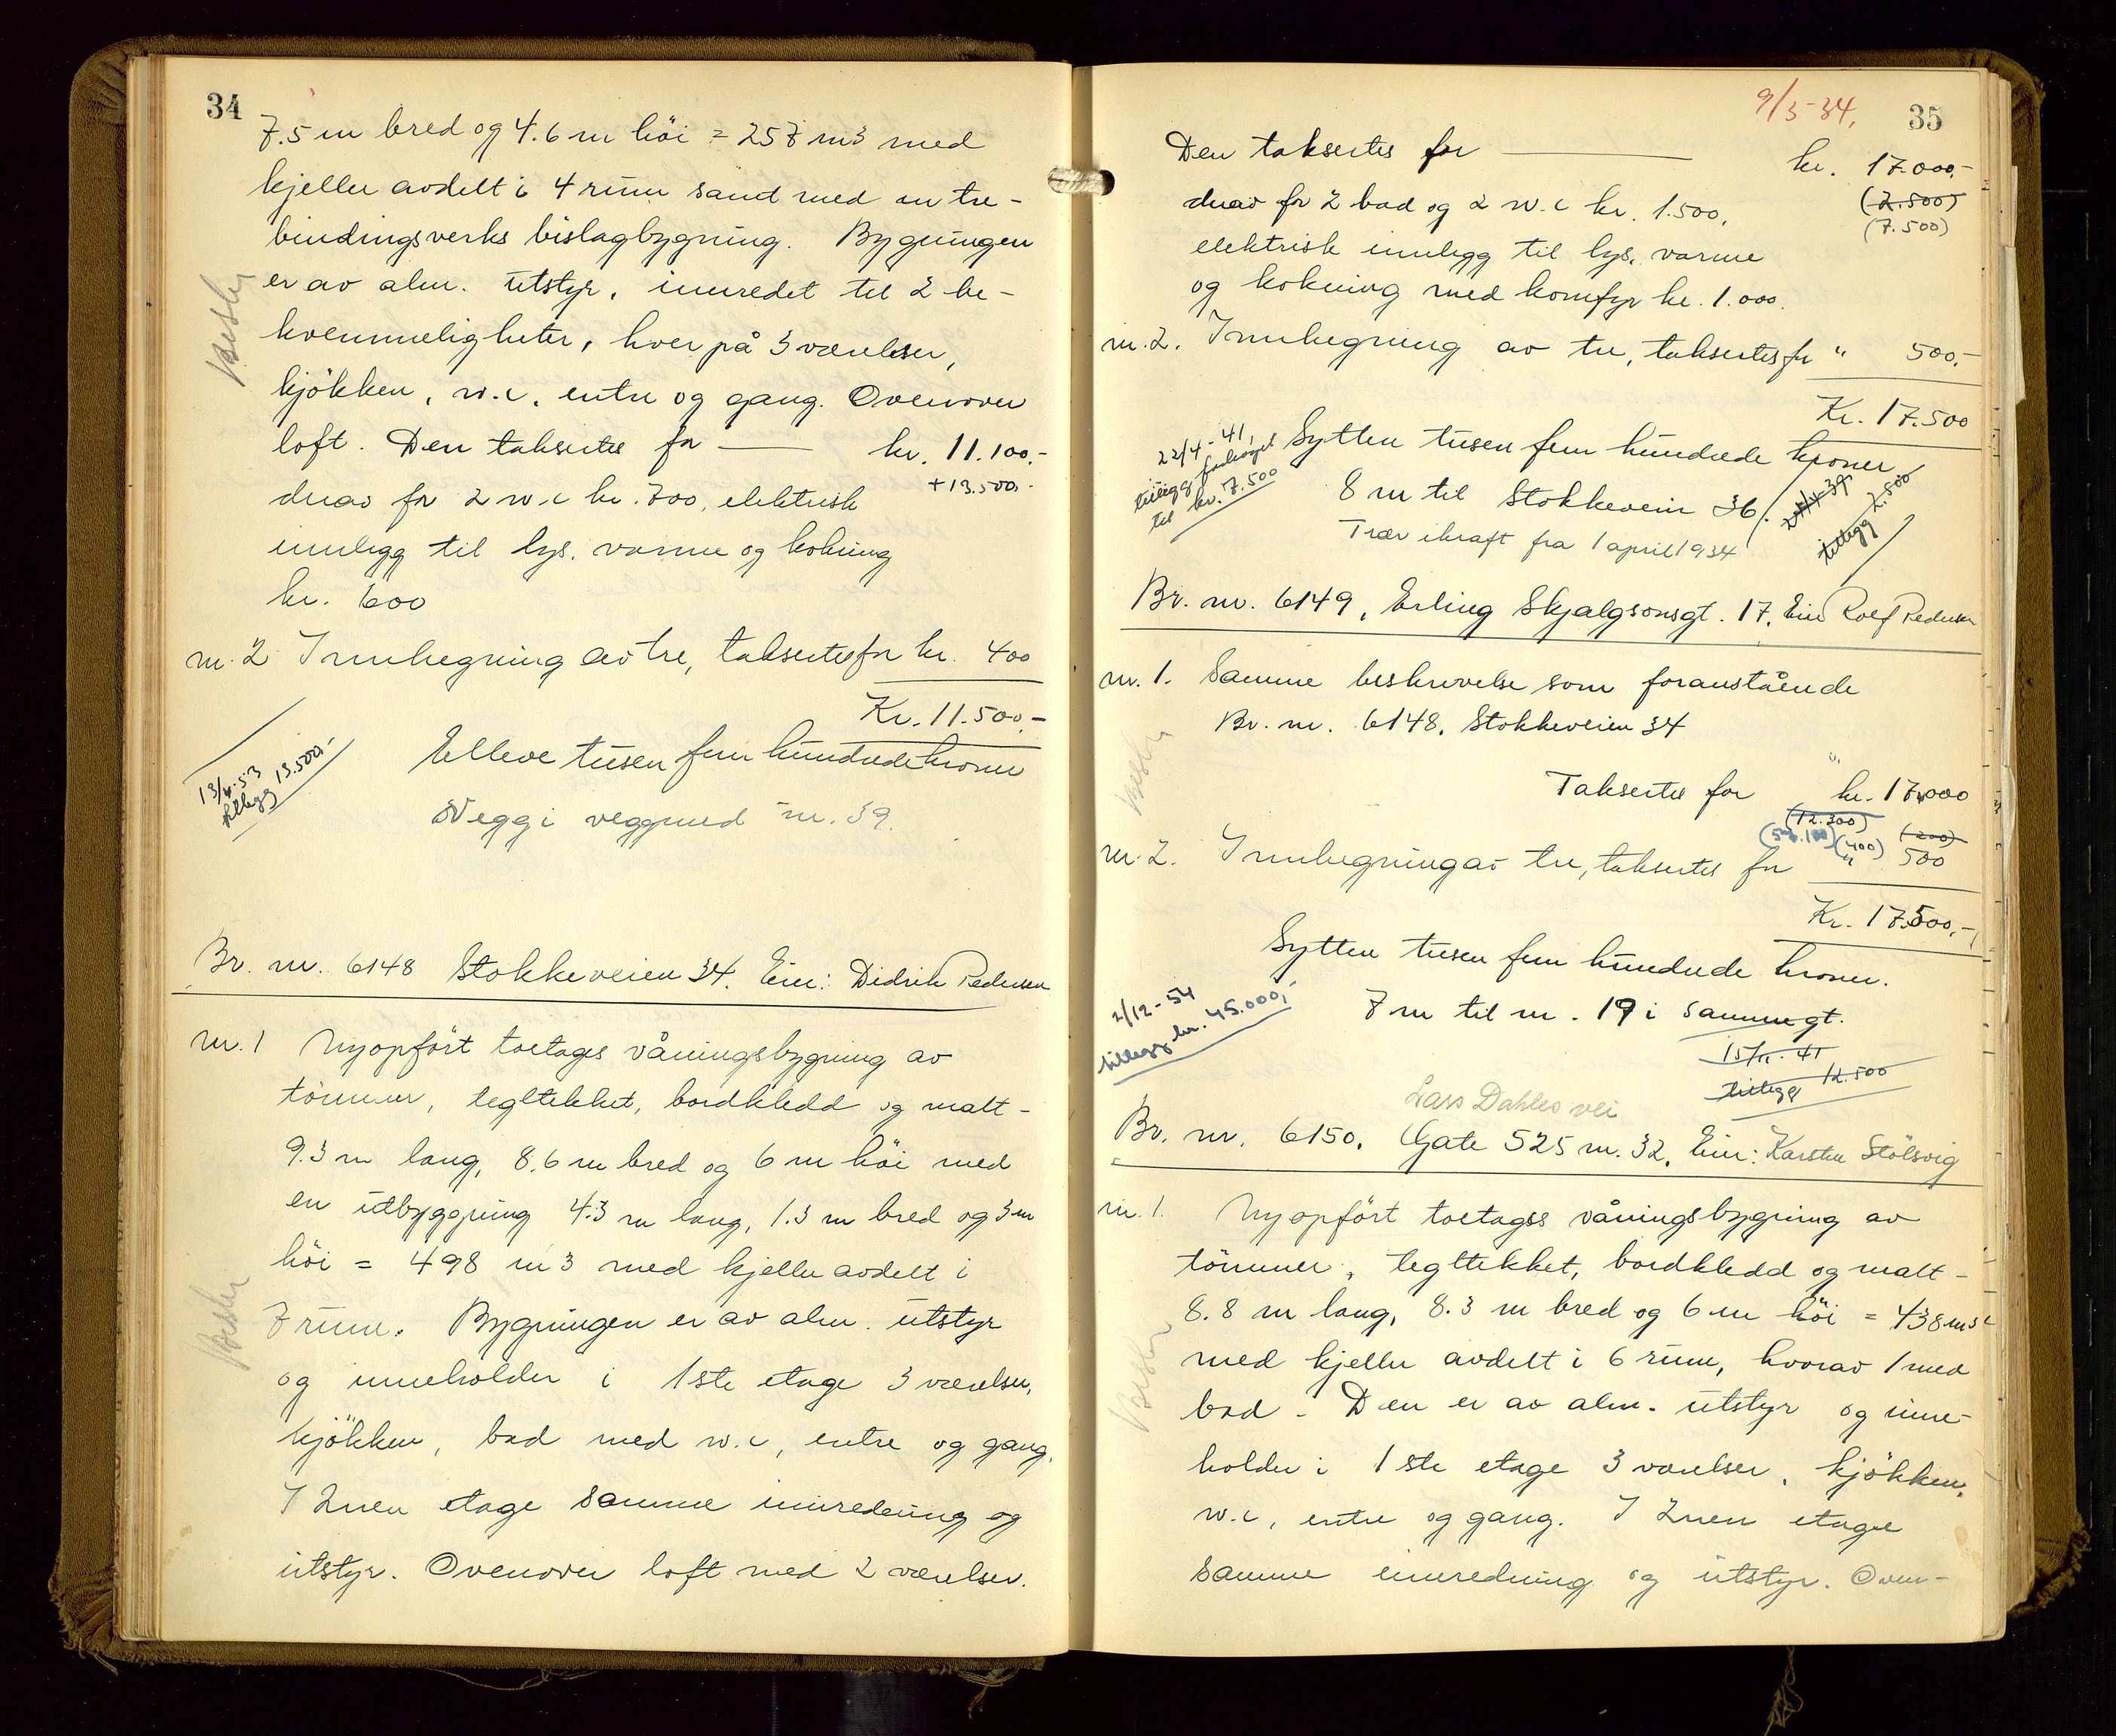 34
7.5 m bred og 4.6 m höi = 257 m3 med
kjeller avdelt i 4 rum samt med en tre-
bindingsverks bislagbygning. Bygningen
er av alm. utstyr, innredet til 2 be-
kvemmeligheter, hver på 3 værelser,
kjökken, w.c., entre og gang. Ovenover
loft. Den takseres for kr. 11.100.-
+13.500.-
drav for 2 w.c kr. 700, elektrisk
innlegg til lys, varme og kokning
kr. 600
nr. 2 Innhegning av tre, takseres for kr. 400
Kr. 11.500.-
Elleve tusen fem hundrede kroner
13/4-53
tillegg 13.500.-
Vegg i vegg med nr. 39.
Br. nr. 6148 Stokkeveien 34. Eier: Didrik Pedersen
nr. 1 Nyopfört toetages våningsbygning av
tömmer, tegltekket, bordkledd og malt-
9.3 m lang, 8.6 m bred og 6 m höi med
en utbyggning 4.3 m lang, 1.3 m bred og 3 m
höi = 498 m3 med kjeller avdelt i
7 rum. Bygningen er av alm. utstyr
og inneholder i 1ste etage 3 værelser,
kjökken, bad med w.c, entre og gang.
I 2nen etage samme innredning og
utstyr. Ovenover loft med 2 værelser.
9/3-34.
35
Den takseres for kr. 17.000.-
(2.500)
(7.500)
drav for 2 bad og 2 w.c kr. 1.500,
elektrisk innlegg til lys, varme
og kokning med komfyr kr. 1.000.
nr. 2. Innhegning av tre, takseres for " 500.-
Kr. 17.500
Sytten tusen fem hundrede kroner
22/4-41,
tillegg forhöyet
til kr. 7.500
8 m til Stokkeveien 36.
Trær ikraft fra 1 april 1934
tillegg 2.500
Br. nr. 6149, Erling Skjalgsonsgt. 17. Eier Rolf Pedersen
nr. 1. Samme beskrivelse som foranstående
Br. nr. 6148, Stokkeveien 34
Takseres for kr. 17.000
(12.300)
(400) (200)
nr. 2. Innhegning av tre, takseres for " 500
Kr. 17.500.-
Sytten tusen fem hundrede kroner.
2/12-54
tillegg kr. 45.000,-
7 m til nr. 19 i samme gt.
15/11-41
tillegg 12.500
Lars Dahles vei
Br. nr. 6150. Gate 525 nr. 32. Eier: Karsten Stölsvig
nr. 1. Nyopfört toetages våningsbygning av
tömmer, tegltekket, bordkledd og malt-
8.8 m lang, 8.3 m bred og 6 m höi = 438 m3
med kjeller avdelt i 6 rum, hvorav 1 med
bad. Den er av alm. utstyr og inne-
holder i 1ste etage 3 værelser, kjökken,
w.c, entre og gang. I 2nen etage
samme innredning og utstyr. Oven-